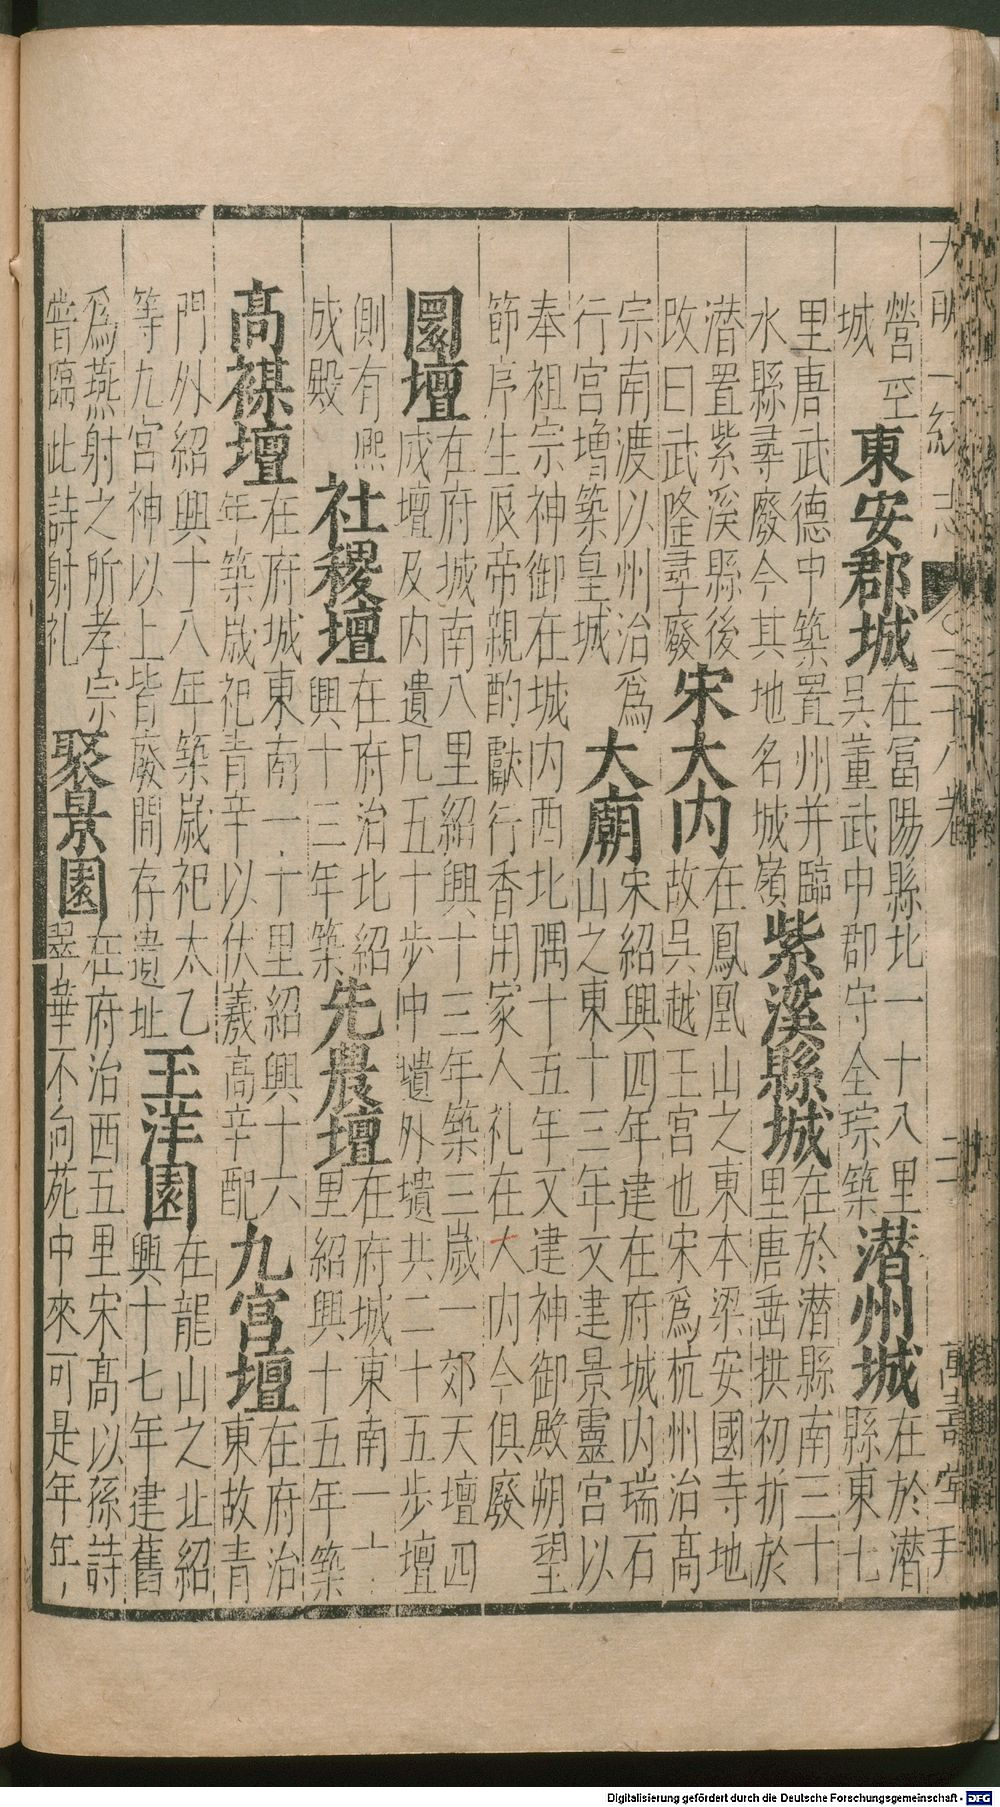 大明一統志 卷之三十八卷 二 萬壽堂
營空
城
東安郡城
在富陽縣北一十八里
吳董武中郡守全琮築
潛州城
在於潛
縣東七
里唐武德中築置州并臨
水縣尋廢今其地名城嶺
紫溪縣城
在於潛縣南三十
里唐垂拱初折於
潛置紫溪縣後
改曰武隆尋廢
宋大內
在鳳凰山之東本梁安國寺地
故吳越王宮也宋爲杭州治高
宗南渡以州治爲
行宮增築皇城
大廟
宋紹興四年建在府城内瑞石
山之東十三年又建景靈宮以
奉祖宗神御在城内西北隅十五年又建神御殿朔望
節序生辰帝親酌獻行香用家人礼在大内今俱廢
圜壇
在府城南八里紹興十三年築三歲一郊天壇四
成壇及内遺凡五十步中壝外壝共二十五步壇
側有熈
成殿
社稷壇
在府治北紹
興十二年築
先農壇
在府城東南一十
里紹興十五年築
高禖壇
在府城東南一十里紹興十六
年築歲祀青辛以伏羲高辛配
九宮壇
在府治
東故青
門外紹興十八年築歲祀太乙
等九宮神以上皆廢間存遺址
玉洋園
在龍山之址紹
興十七年建舊
爲燕射之所孝宗
昔臨此詩射礼
聚景園
在府治西五里宋高以孫詩
翠華不向苑中來可是年年